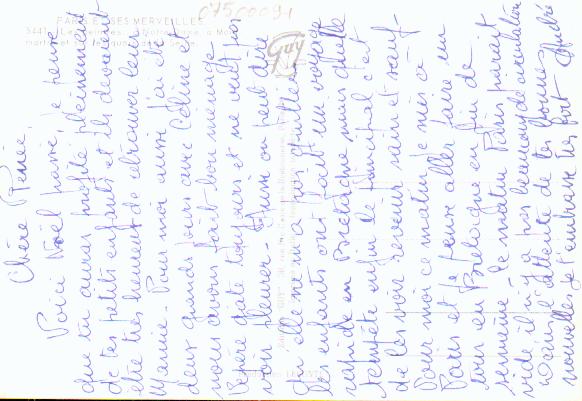 07500091
PARIS ET SES MERVEILLES
Guy
Chère Renée,
Voici Noël passé, je pense
que tu auras profité pleinement
de tes petits enfants et ils devraient
être très heureux de retrouver leur
Mamie. Pour moi aussi j'ai eu
deux grands jours avec Céline et
nous avons fait bon ménage.
Pépère gâte toujours et ne veut pas
voir pleurer Aussi on peut dire
qu'elle ne m'a pas quittée.
Les enfants ont fait un voyage
rapide en Bretagne mais quelle
tempête enfin le principal c'est
de les voir revenir sain et sauf.
Pour moi ce matin je suis à
Paris et je pense aller faire un
tour en Belgique en fin de
semaine. Ce matin Paris paraît
vide il n'y a pas beaucoup de circulation
Dans l'attente de tes bonnes
nouvelles je t'embrasse très fort André